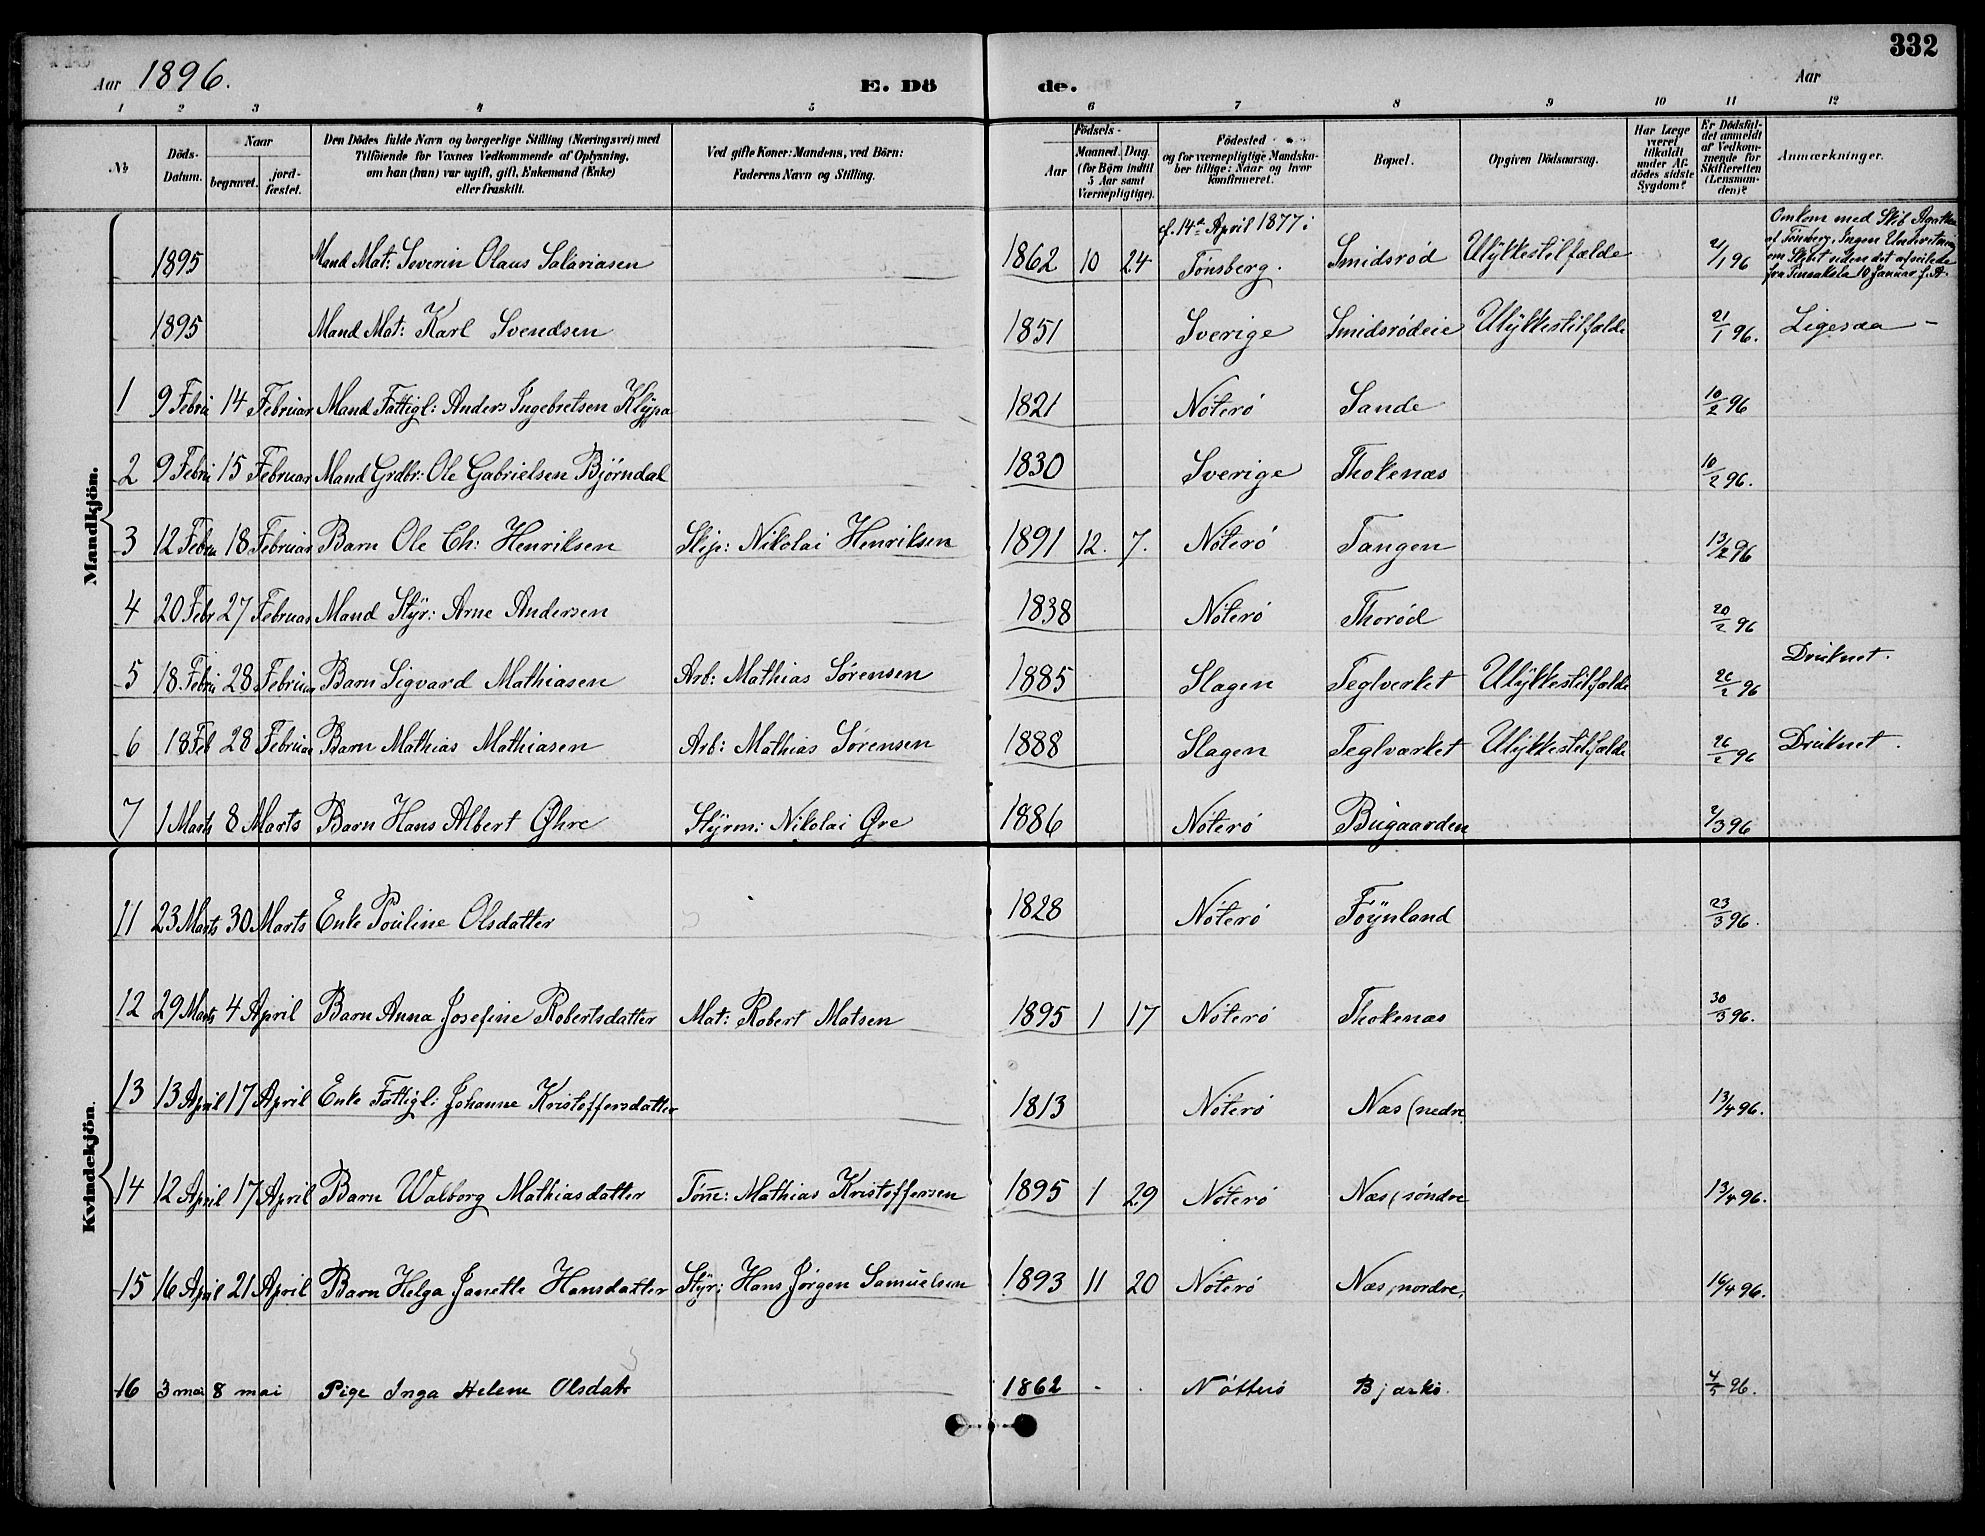 332
Aar 1896. E. Dö de. Aar
1 2 3 4 5 6 7 8 9 10 11 12
№ Döds-Datum. Naar begravet. jord-fæstet. Den Dödes fulde Navn og borgerlige Stilling (Næringsvei) med Tilföiende for Voxnes Vedkommende af Oplysning, om han (hun) var ugift, gift, Enkemand (Enke) eller fraskilt. Ved gifte Koner: Mandens, ved Börn: Faderens Navn og Stilling. Födsels- Aar Maaned. Dag. (for Börn indtil 5 Aar samt Værnepligtige). Födested og for værnepligtige Mandska-ber tillige: Naar og hvor konfirmeret. Bopæl. Opgiven Dödsaarsag. Har Læge været tilkaldt under Af-dödes sidste Sygdom? Er Dödsfal-det anmeldt af Vedkom-mende for Skifteretten (Lensman-den)? Anmærkninger.
Mandkjön.
1895 Mand Mat: Severin Olaus Salariasen 1862 10 24 cf. 14de April 1877: Tønsberg. Smidsrød Ulÿkkestilfælde 21/1 96 Omkom med Skib Agathe af Tönsberg. Ingen Underretning om Skibet siden det afseilede fra Pensakola 10 Januar f. A.
1895 Mand Mat: Karl Svendsen 1851 Sverige Smidsrødeie Ulÿkkestilfælde 21/1 96. Ligesaa –
1 9 Febru 14 Februar Mand Fattigl: Anders Ingebretsen Klÿpa 1821 Nöterö Sande 10/2 96
2 9 Febru 15 Februar Mand Grdbr: Ole Gabrielsen Björndal 1830 Sverige Thokenæs 10/2 96.
3 12 Febru 18 Februar Barn Ole Ch: Henriksen Skip: Nikolai Henriksen 1891 12. 7. Nöterö Tangen 13/2 96
4 20 Febr 27 Februar Mand Stÿr: Arne Andersen 1838 Nöterö Thorød 20/2 96
5 18 Febru 28 Februar Barn Sigvard Mathiasen Arb: Mathias Sørensen 1885 Slagen Teglverket Ulÿkkestilfælde 26/2 96 Druknet.
6 18 Feb 28 Februar Barn Mathias Mathiasen Arb: Mathias Sørensen 1888 Slagen Teglværket Ulÿkkestilfælde 26/2 96 Druknet.
7 1 Marts 8 Marts Barn Hans Albert Øhre Stÿrm: Nikolai Øre 1886 Nöterö Bugaarden 2/3 96
Kvindekjön.
11 23 Marts 30 Marts Enke Pouline Olsdatter 1828 Nöterö Föÿnland 23/3 96.
12 29 Marts 4 April Barn Anna Josefine Robertsdatter Mat: Robert Matsen 1895 1 17 Nöterö Thokenæs 30/3 96.
13 13 April 17 April Enke Fattigl: Johanne Kristoffersdatter 1813 Nöterö Næs (nedre 13/4 96.
14 12 April 17 April Barn Walborg Mathiasdatter Töm: Mathias Kristoffersen 1895 1 29 Nöterö Næs (söndre 13/4 96.
15 16 April 21 April Barn Helga Janette Hansdatter Stÿr: Hans Jörgen Samuelsen 1893 11 20 Nöterö Næs, nordre. 16/4 96.
16 3 mai 8 mai Pige Inga Helene Olsdatr 1862 - - Nötterö Bjærkö. 4/5 96.